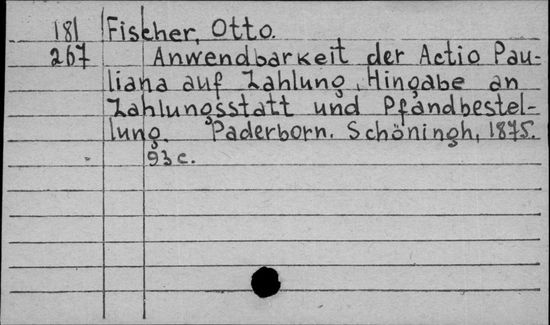 181 Fischer, Otto.
267 Anwendbarkeit der Actio Pau-
liana auf Zahlung, Hingabe an
Zahlungsstatt und Pfandbestel-
lung. Paderborn. Schöningh, 1875.
93 c.